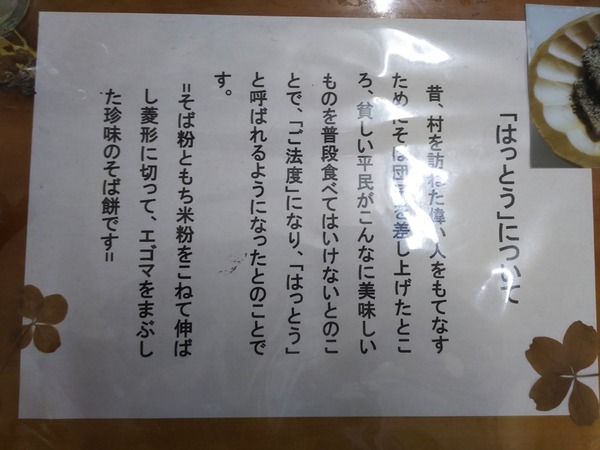 「はっとう」について
昔、村を訪ねた偉い人をもてなす
ためにそば団子を差し上げたとこ
ろ、貧しい平民がこんなに美味しい
ものを普段食べてはいけないとのこ
とで、「ご法度」になり、「はっとう」
と呼ばれるようになったとのことで
す。
=そば粉ともち米粉をこねて伸ば
し菱形に切って、エゴマをまぶし
た珍味のそば餅です=